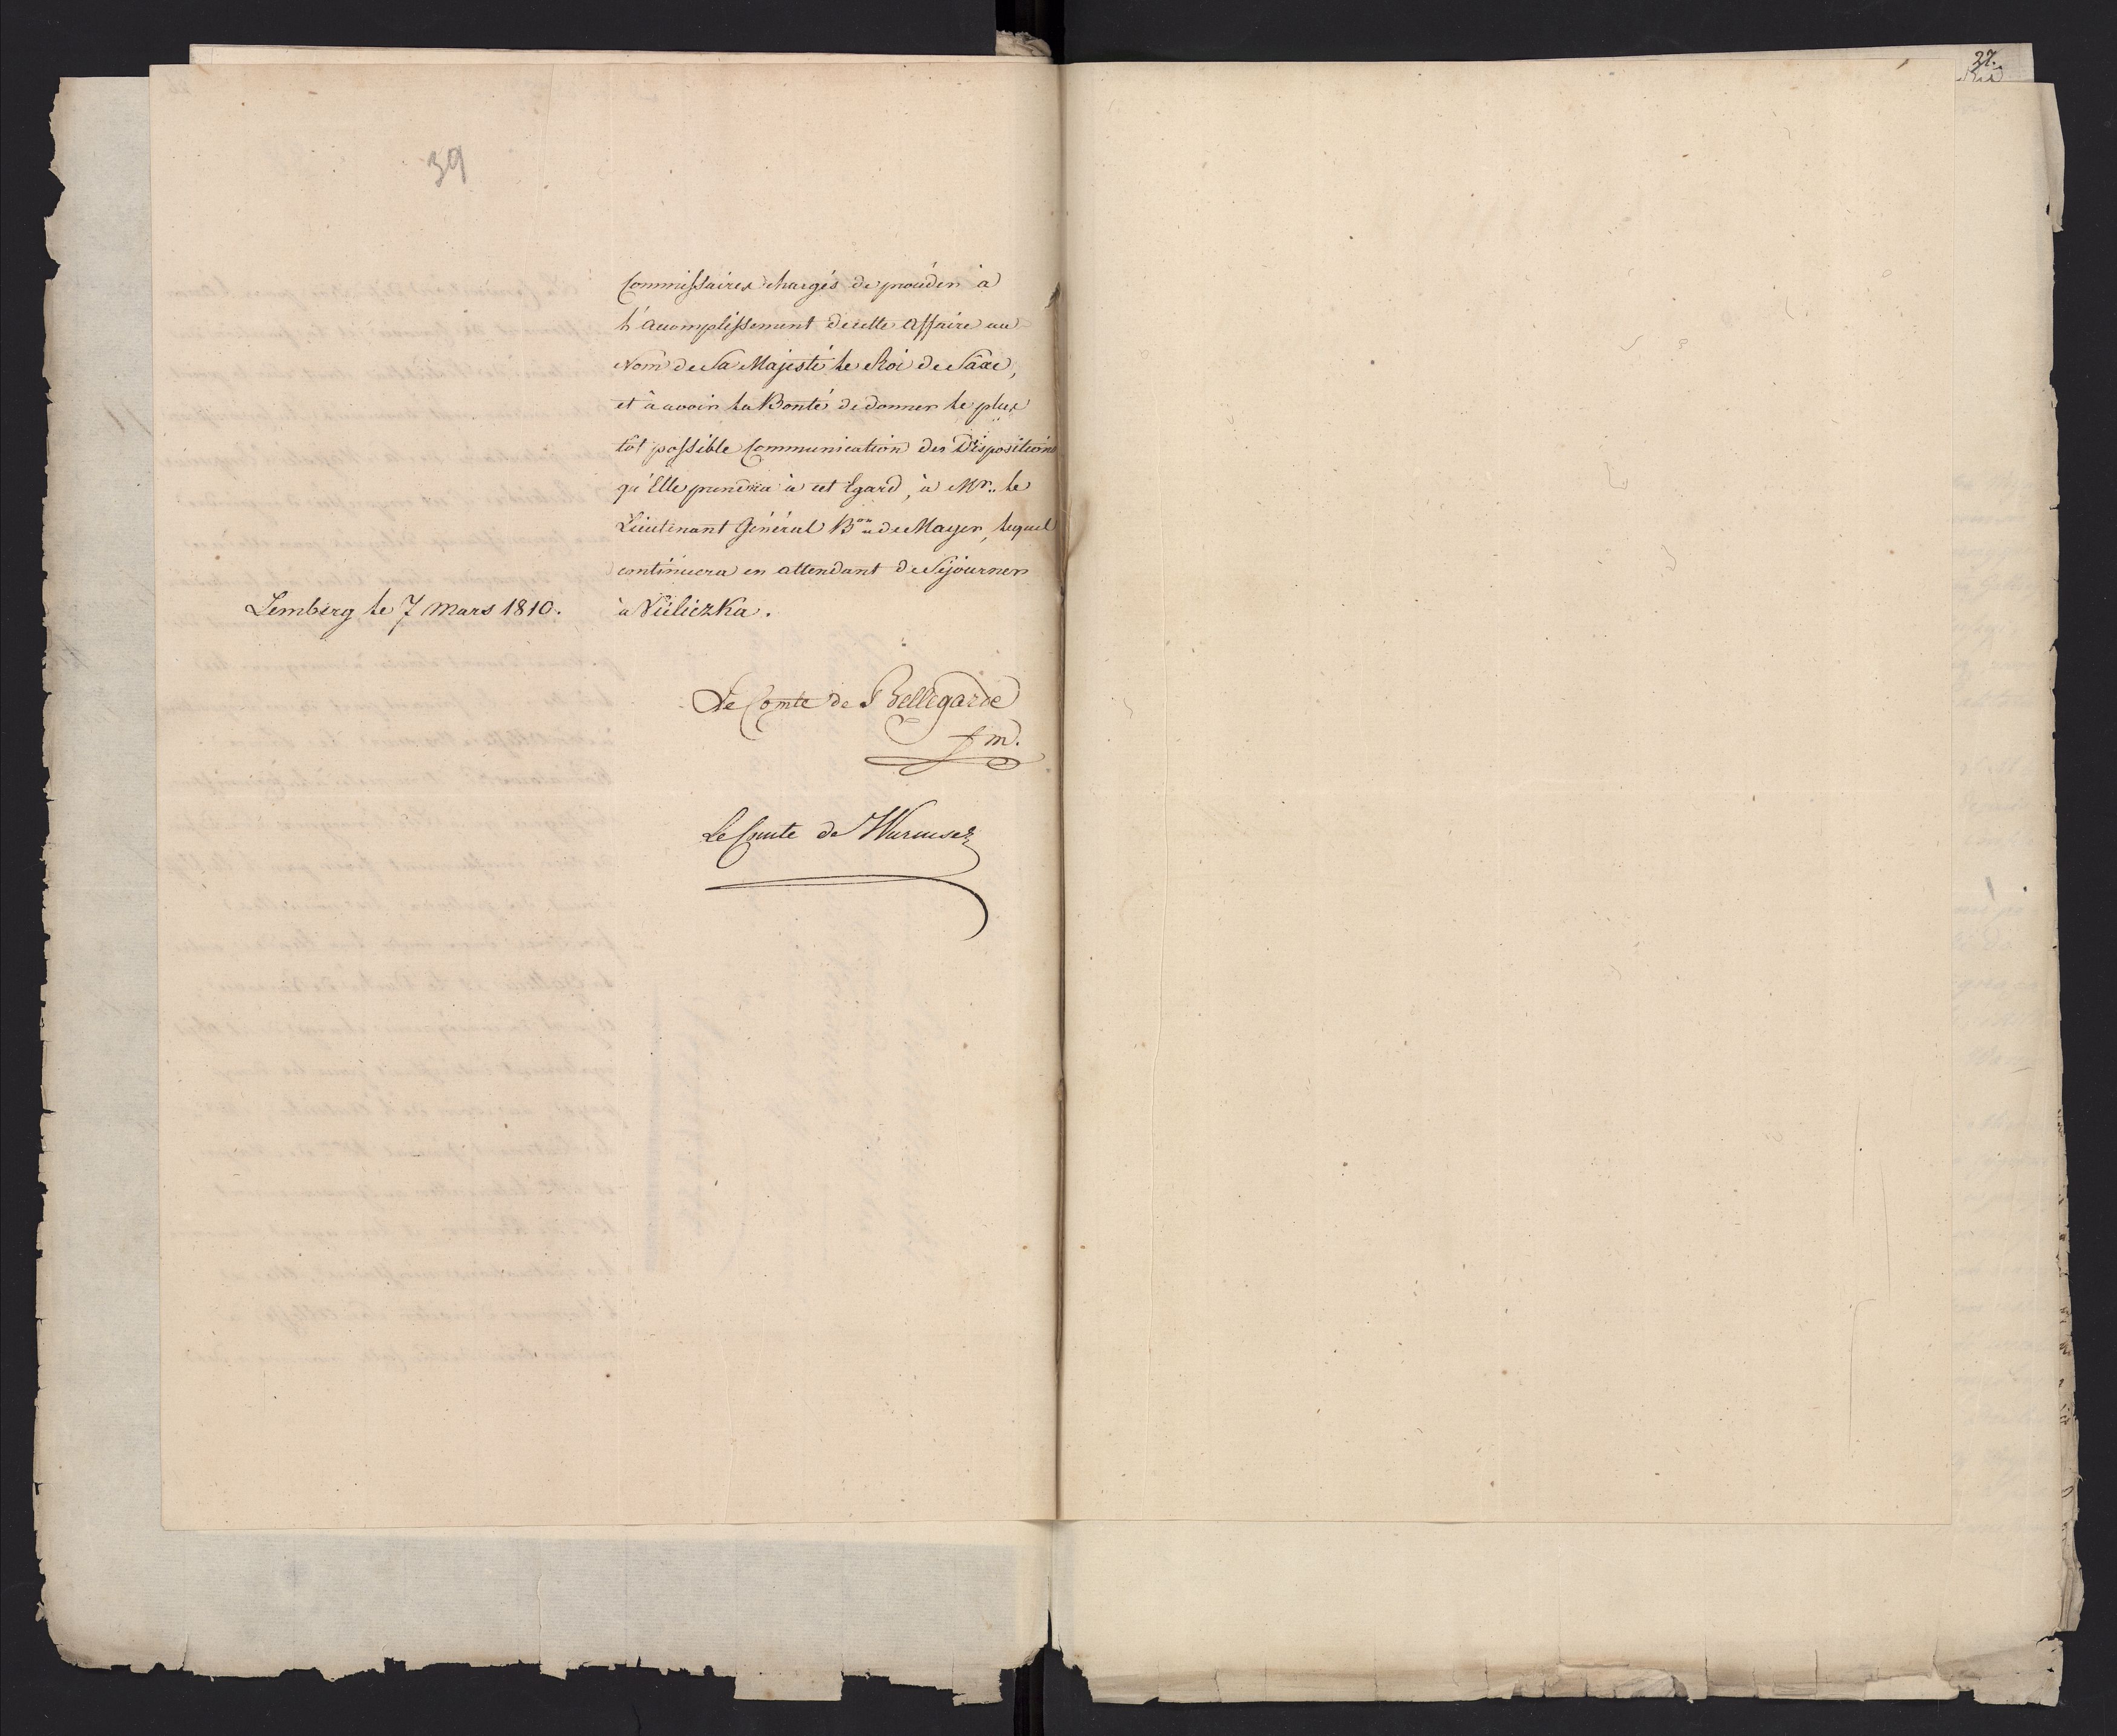 39
37.
Commissaires chargés de procéder à
l'acomplissement de cette Affaire au
Nom de Sa Majesté le Roi de Saxe,
et à avoir la Bonté de donner le plus
tôt possible Communication des Dispositions
qu'Elle prendra à cet Egard, à Mr. le
Lieutenant Général Bon de Mayer, lequel
continuera en attendant de Séjourner
Lemberg le 7 Mars 1810. à Vieliczka.
Le Comte de Bellegarde
fm.
Le Comte de Wurmser